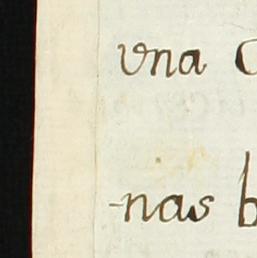 vna
-nas